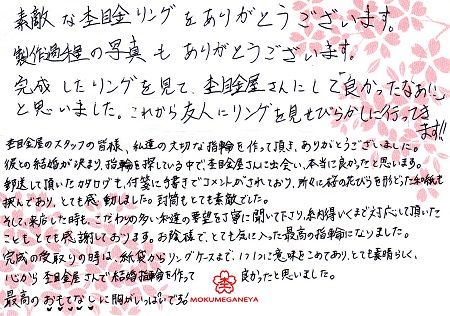 素敵な杢目金リングをありがとうございます。
製作過程の写真もありがとうございます。
完成したリングを見て、杢目金屋さんにして「良かったなぁ!!」
と思いました。これから友人にリングを見せびらかしに行ってき
ます!!
杢目金屋のスタッフの皆様、私達の大切な指輪を作って頂き、ありがとうございました。
彼との結婚が決まり、指輪を探している中で、杢目金屋さんに出会い、本当に良かったと思います。
郵送して頂いたカタログも、付箋に手書きでコメントがされており、所々に桜の花びらを形どった和紙も
挟んであり、とても感動しました。封筒もとても素敵でした。
そして、来店した時も、こだわりの多い私達の要望を丁寧に聞いて下さり、納得いくまで対応して頂いた
こともとても感謝しております。お陰様で、とても気に入った最高の指輪になりました。
完成の受取りの時は、紙袋からリングケースまで、1つ1つに意味をこめてあり、とても素晴らしく、
心から杢目金屋さんで結婚指輪を作って良かったと思いました。
最高のおもてなしに胸がいっぱいです!
MOKUMEGANEYA